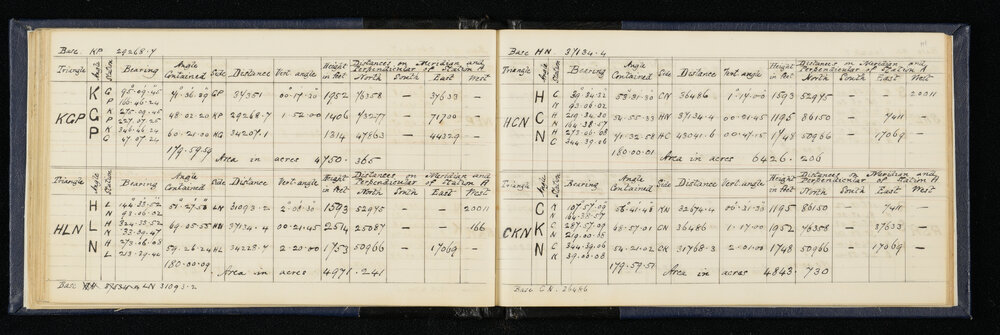 Base KP 29268.7
Triangle Angle Station Bearing Angle Contained Side Distance Vert. angle Height in feet Distances on Meridian and Perpendicular of Station A
North South East West
KGP
K G 95.09.45 71.36.39 GP 37351 00.17.30 1952 76358 — 37633 —
P 166.46.24
G K 275.09.45 48.02.20 KP 29268.7 1.52.00 1406 73277 — 71700 —
P 227.07.25
P K 346.46.24 60.21.00 KG 34207.1 1314 47863 — 44329 —
G 47.07.24
179.59.59 Area in acres 4750.365
Triangle Angle Station Bearing Angle Contained Side Distance Vert. angle Height in feet Distances on Meridian and Perpendicular of Station A
North South East West
HLN
H L 51.27.50 LN 31093.2 2.08.30 1593 52975 — 20011
N 93.06.02
L H 69.05.55 HN 37134.4 00.21.45 2614 25087 — — 166
N
N H 273.06.08 59.26.24 HL 34228.7 2.20.00 1753 50966 — 17069 —
L 213.39.40
180.00.09 Area in acres 4971.241
Base LN 31093.2
Base HN. 37134.4
Triangle Angle Station Bearing Angle Contained Side Distance Vert. angle Height in feet Distances on Meridian and Perpendicular of Station A
North South East West
HCN
H C 39.34.32 53.31.30 CN 36486 1.17.00 1593 52975 — — 20011
N 93.06.02
C H 219.34.30 54.55.33 HN 37134.4 00.21.45 1195 86150 — 7411 —
N 164.38.57
N H 273.06.08 71.32.58 HC 43041.6 00.47.15 1748 50966 — 17069 —
C 344.39.06
180.00.01 Area in acres 6426.206
Triangle Angle Station Bearing Angle Contained Side Distance Vert. angle Height in feet Distances on Meridian and Perpendicular of Station A
North South East West
CKN
C K 107.57.09 56.41.48 KN 32674.4 00.31.30 1195 86150 — 7411 —
N 164.38.57
K C 287.57.09 68.57.01 CN 36486 1.17.00 1952 76358 — 37633 —
N 219.00.08
N C 344.39.06 54.21.02 CK 31768.3 2.01.00 1748 50966 — 17069 —
K 39.00.08
179.59.51 Area in acres 4843.730
Base CN. 36486